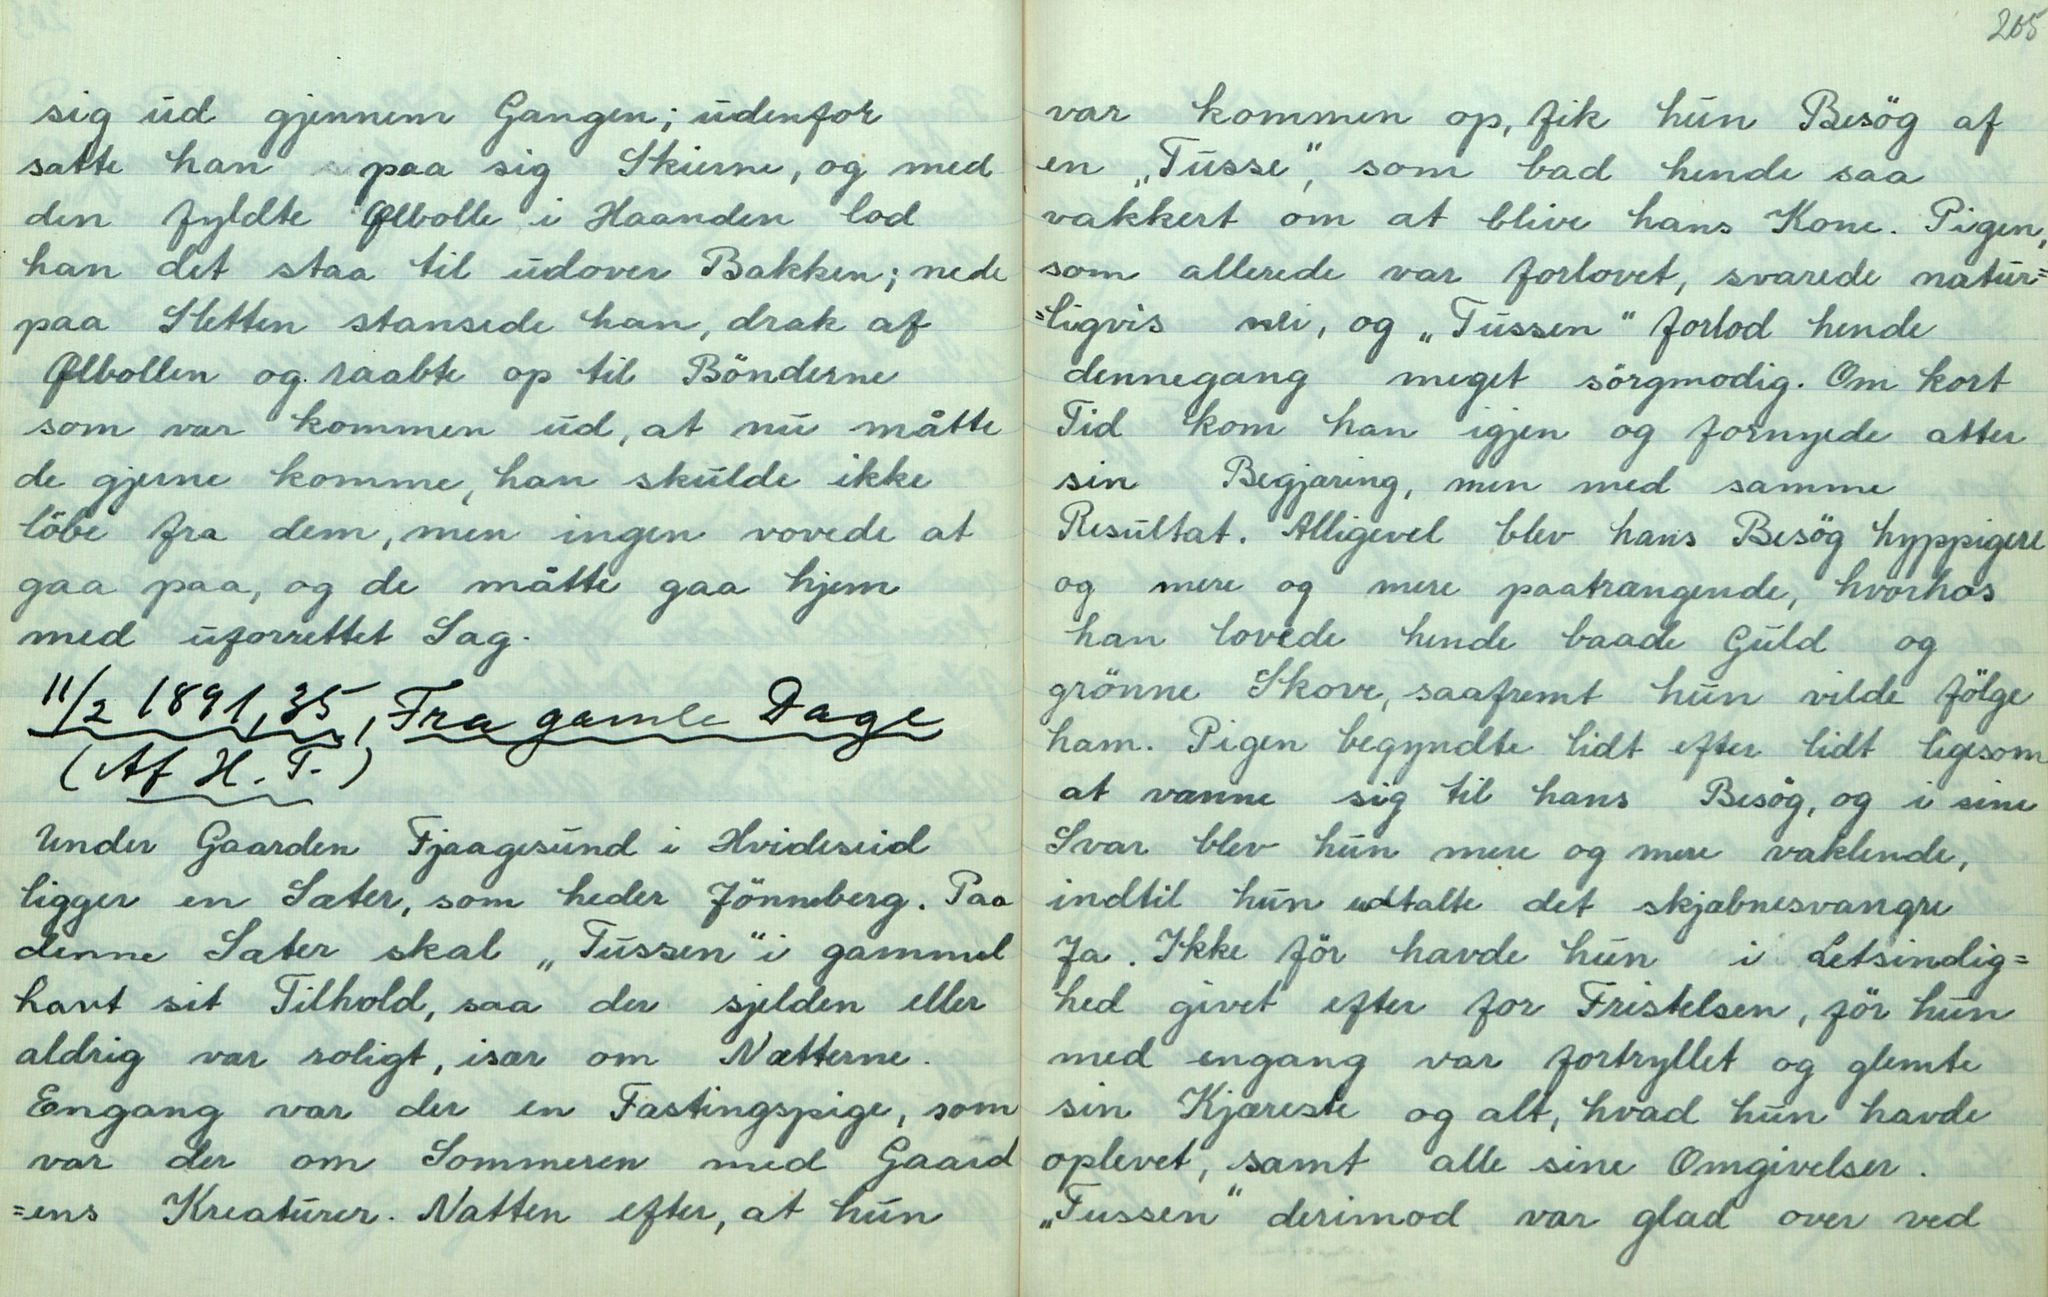 sig ud gjennem Gangen; udenfor
satte han paa sig Skierne, og med
den fyldte Ølbolle i Haanden lod
han det staa til udover Bakken; nede
paa Sletten stansede han, drak af
Ølbollen og raabte op til Bönderne
som var kommen ud, at nu måtte
de gjerne komme, han skulde ikke
löbe fra dem, men ingen vovede at
gaa paa, og de måtte gaa hjem
med uforrettet Sag.
11/2 1891, 35, Fra gamle Dage
(Af H. T.)
Under Gaarden Fjaagesund i Hvideseid
ligger en Sæter, som heder Jönneberg. Paa
denne Sæter skal „Tussen" i gammel
havt sit Tilhold, saa der sjelden eller
aldrig var roligt, især om Nætterne.
Engang var der en Fastingspige, som
var der om Sommeren med Gaard
=ens Kreaturer. Natten efter, at hun
205
var kommen op, fik hun Besög af
en „Tusse", som bad hende saa
vakkert om at blive hans Kone. Pigen,
som allerede var forlovet, svarede natur=
=ligvis nei, og „Tussen" forlod hende
dennegang meget sörgmodig. Om kort
Tid kom han igjen og fornyede atter
sin Begjæring, men med samme
Resultat. Alligevel blev hans Besög hyppigere
og mere og mere paatrængende, hvorhos
han lovede hende baade Guld og
grönne Skove, saafremt hun vilde fölge
ham. Pigen begyndte lidt efter lidt ligesom
at vænne sig til hans Besög, og i sine
Svar blev hun mere og mere vaklende,
indtil hun udtalte det skjæbnesvangre
Ja. Ikke för havde hun i Letsindig=
hed givet efter for Fristelsen, för hun
med engang var fortryllet og glemte
sin Kjæreste og alt, hvad hun havde
oplevet, samt alle sine Omgivelser.
„Tussen" derimod var glad over ved